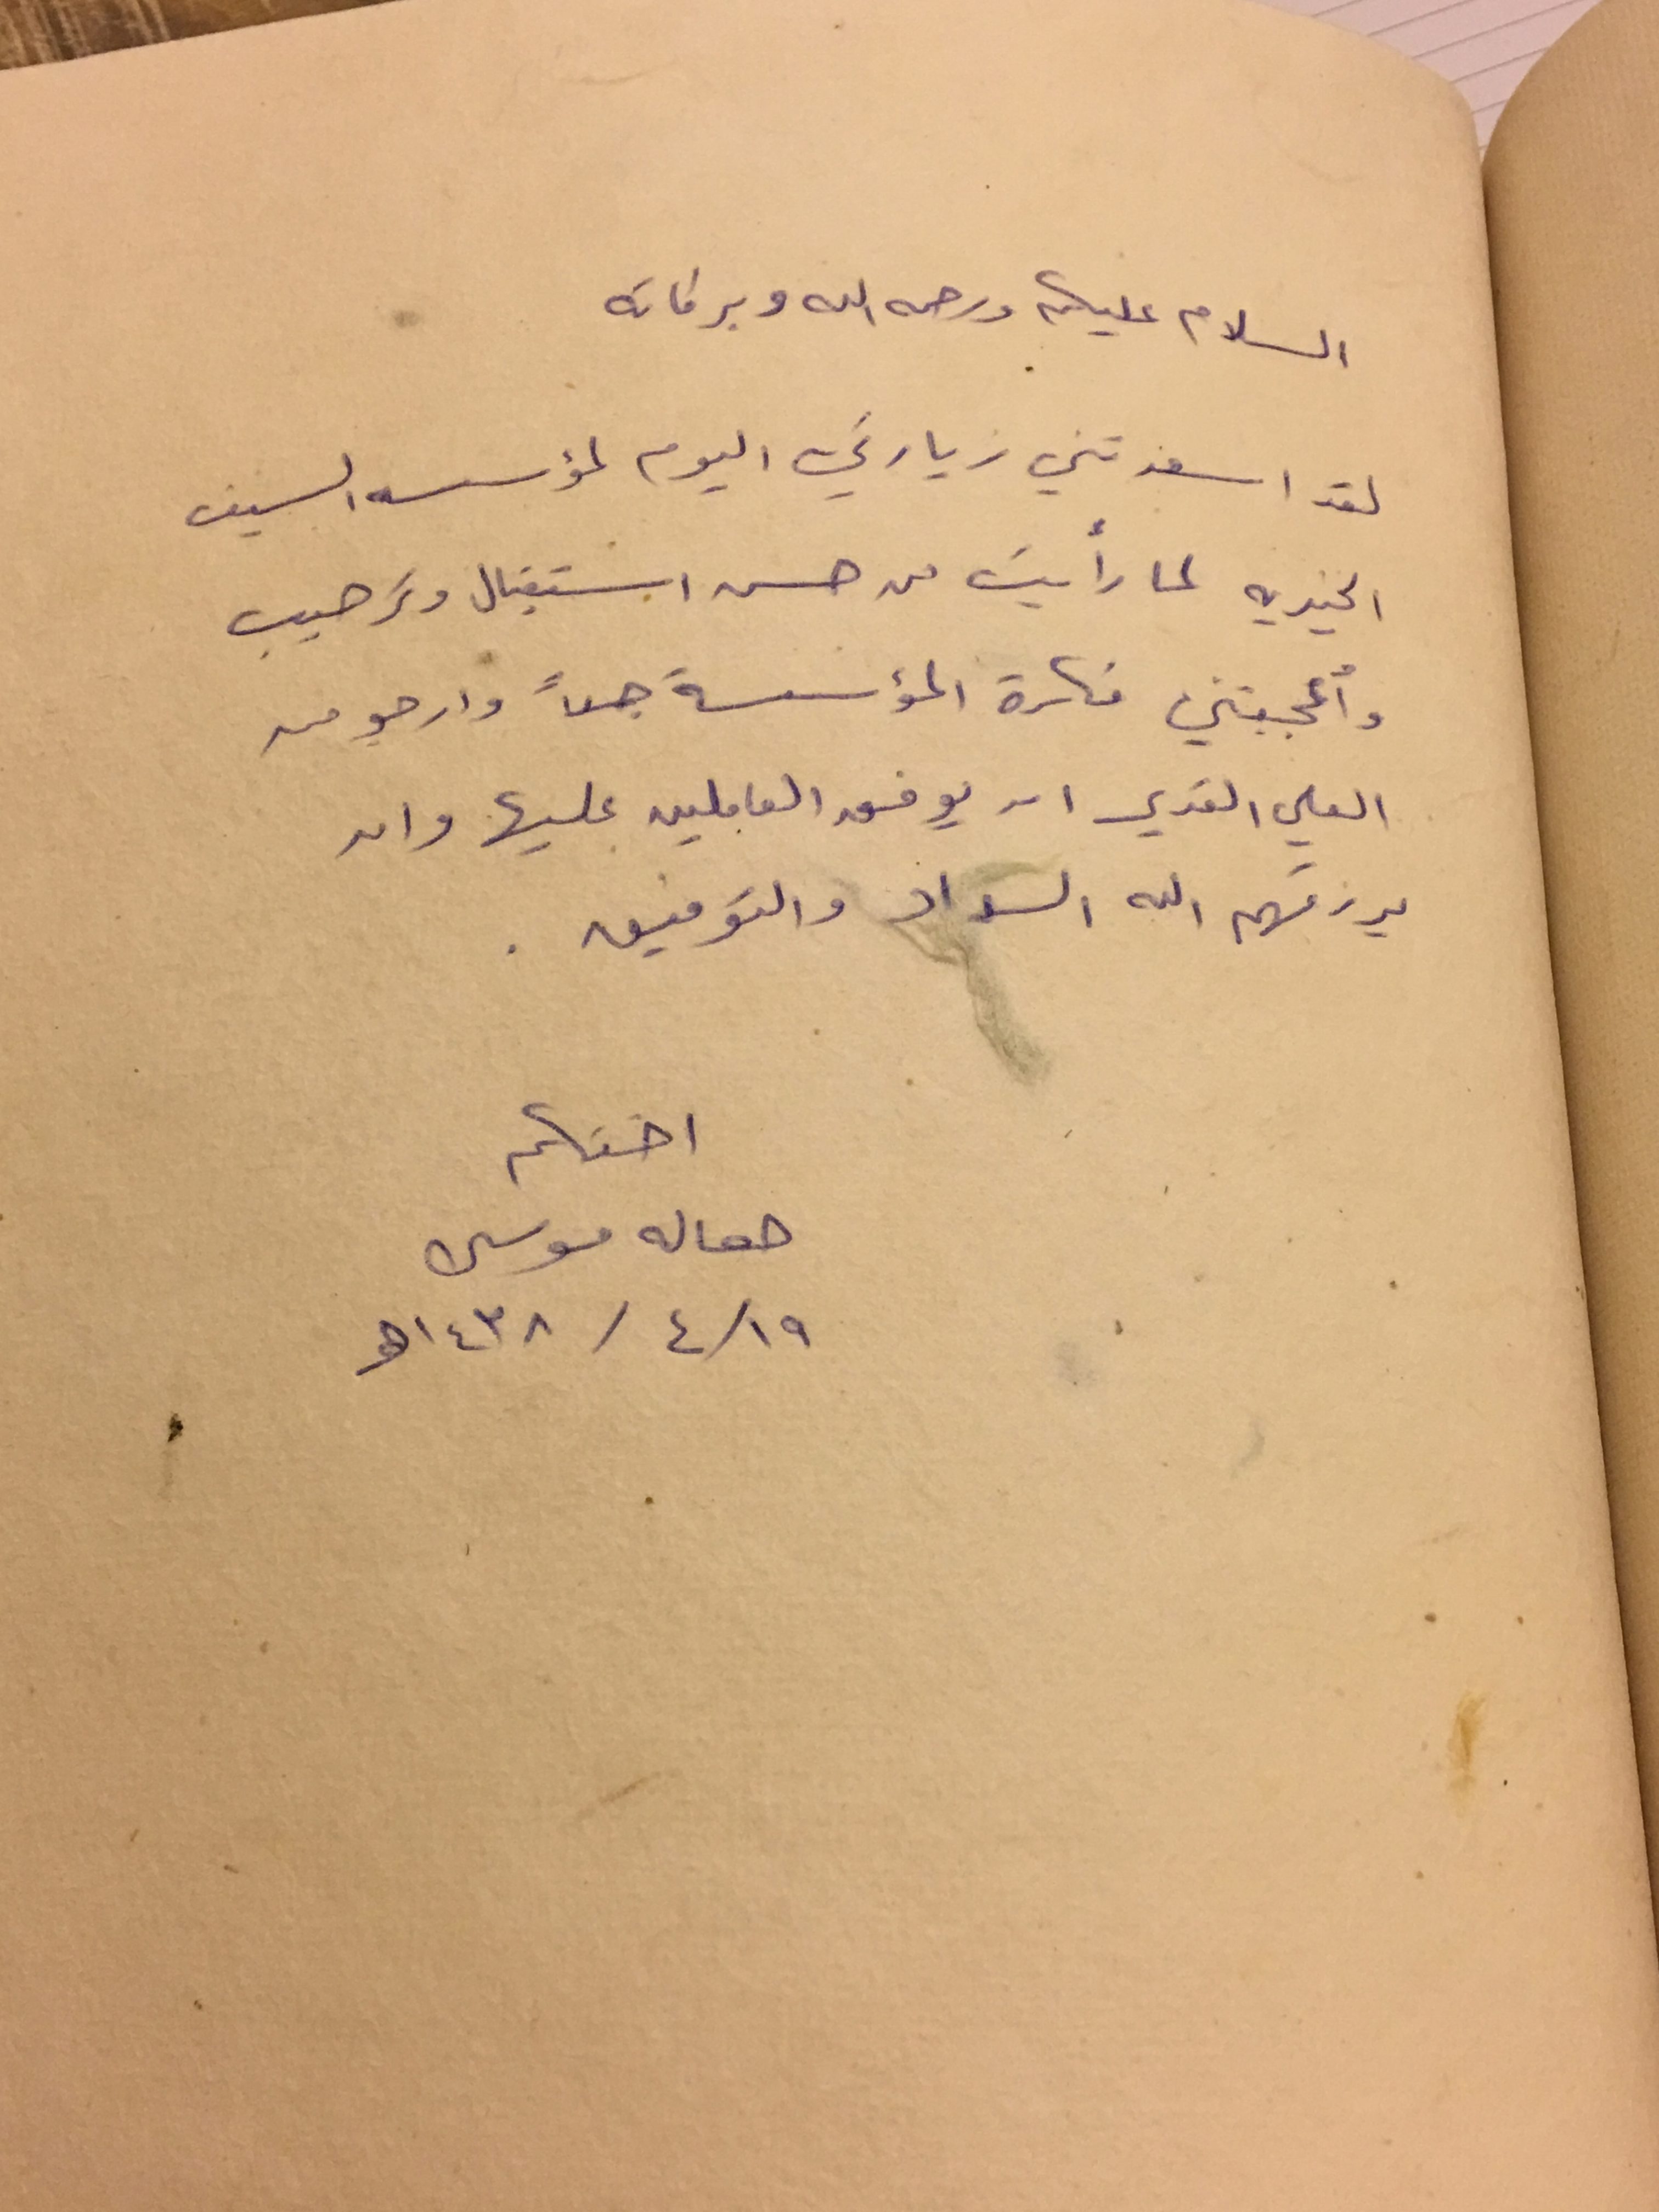 السلام عليكم ورحمه الله وبركاته
لقد اسعدتني زيارتي اليوم لمؤسسه السيف
الخيريه لما رأيت من حسن استقبال وترحيب
وأعجبتني فكرة المؤسسة جداً وارجو من
العلي القدير ان يوفق العاملين عليها وان
يرزقهم الله السداد والتوفيق .
اختكم
موسى
١٩/ ٤ / ١٤٣٨هـ